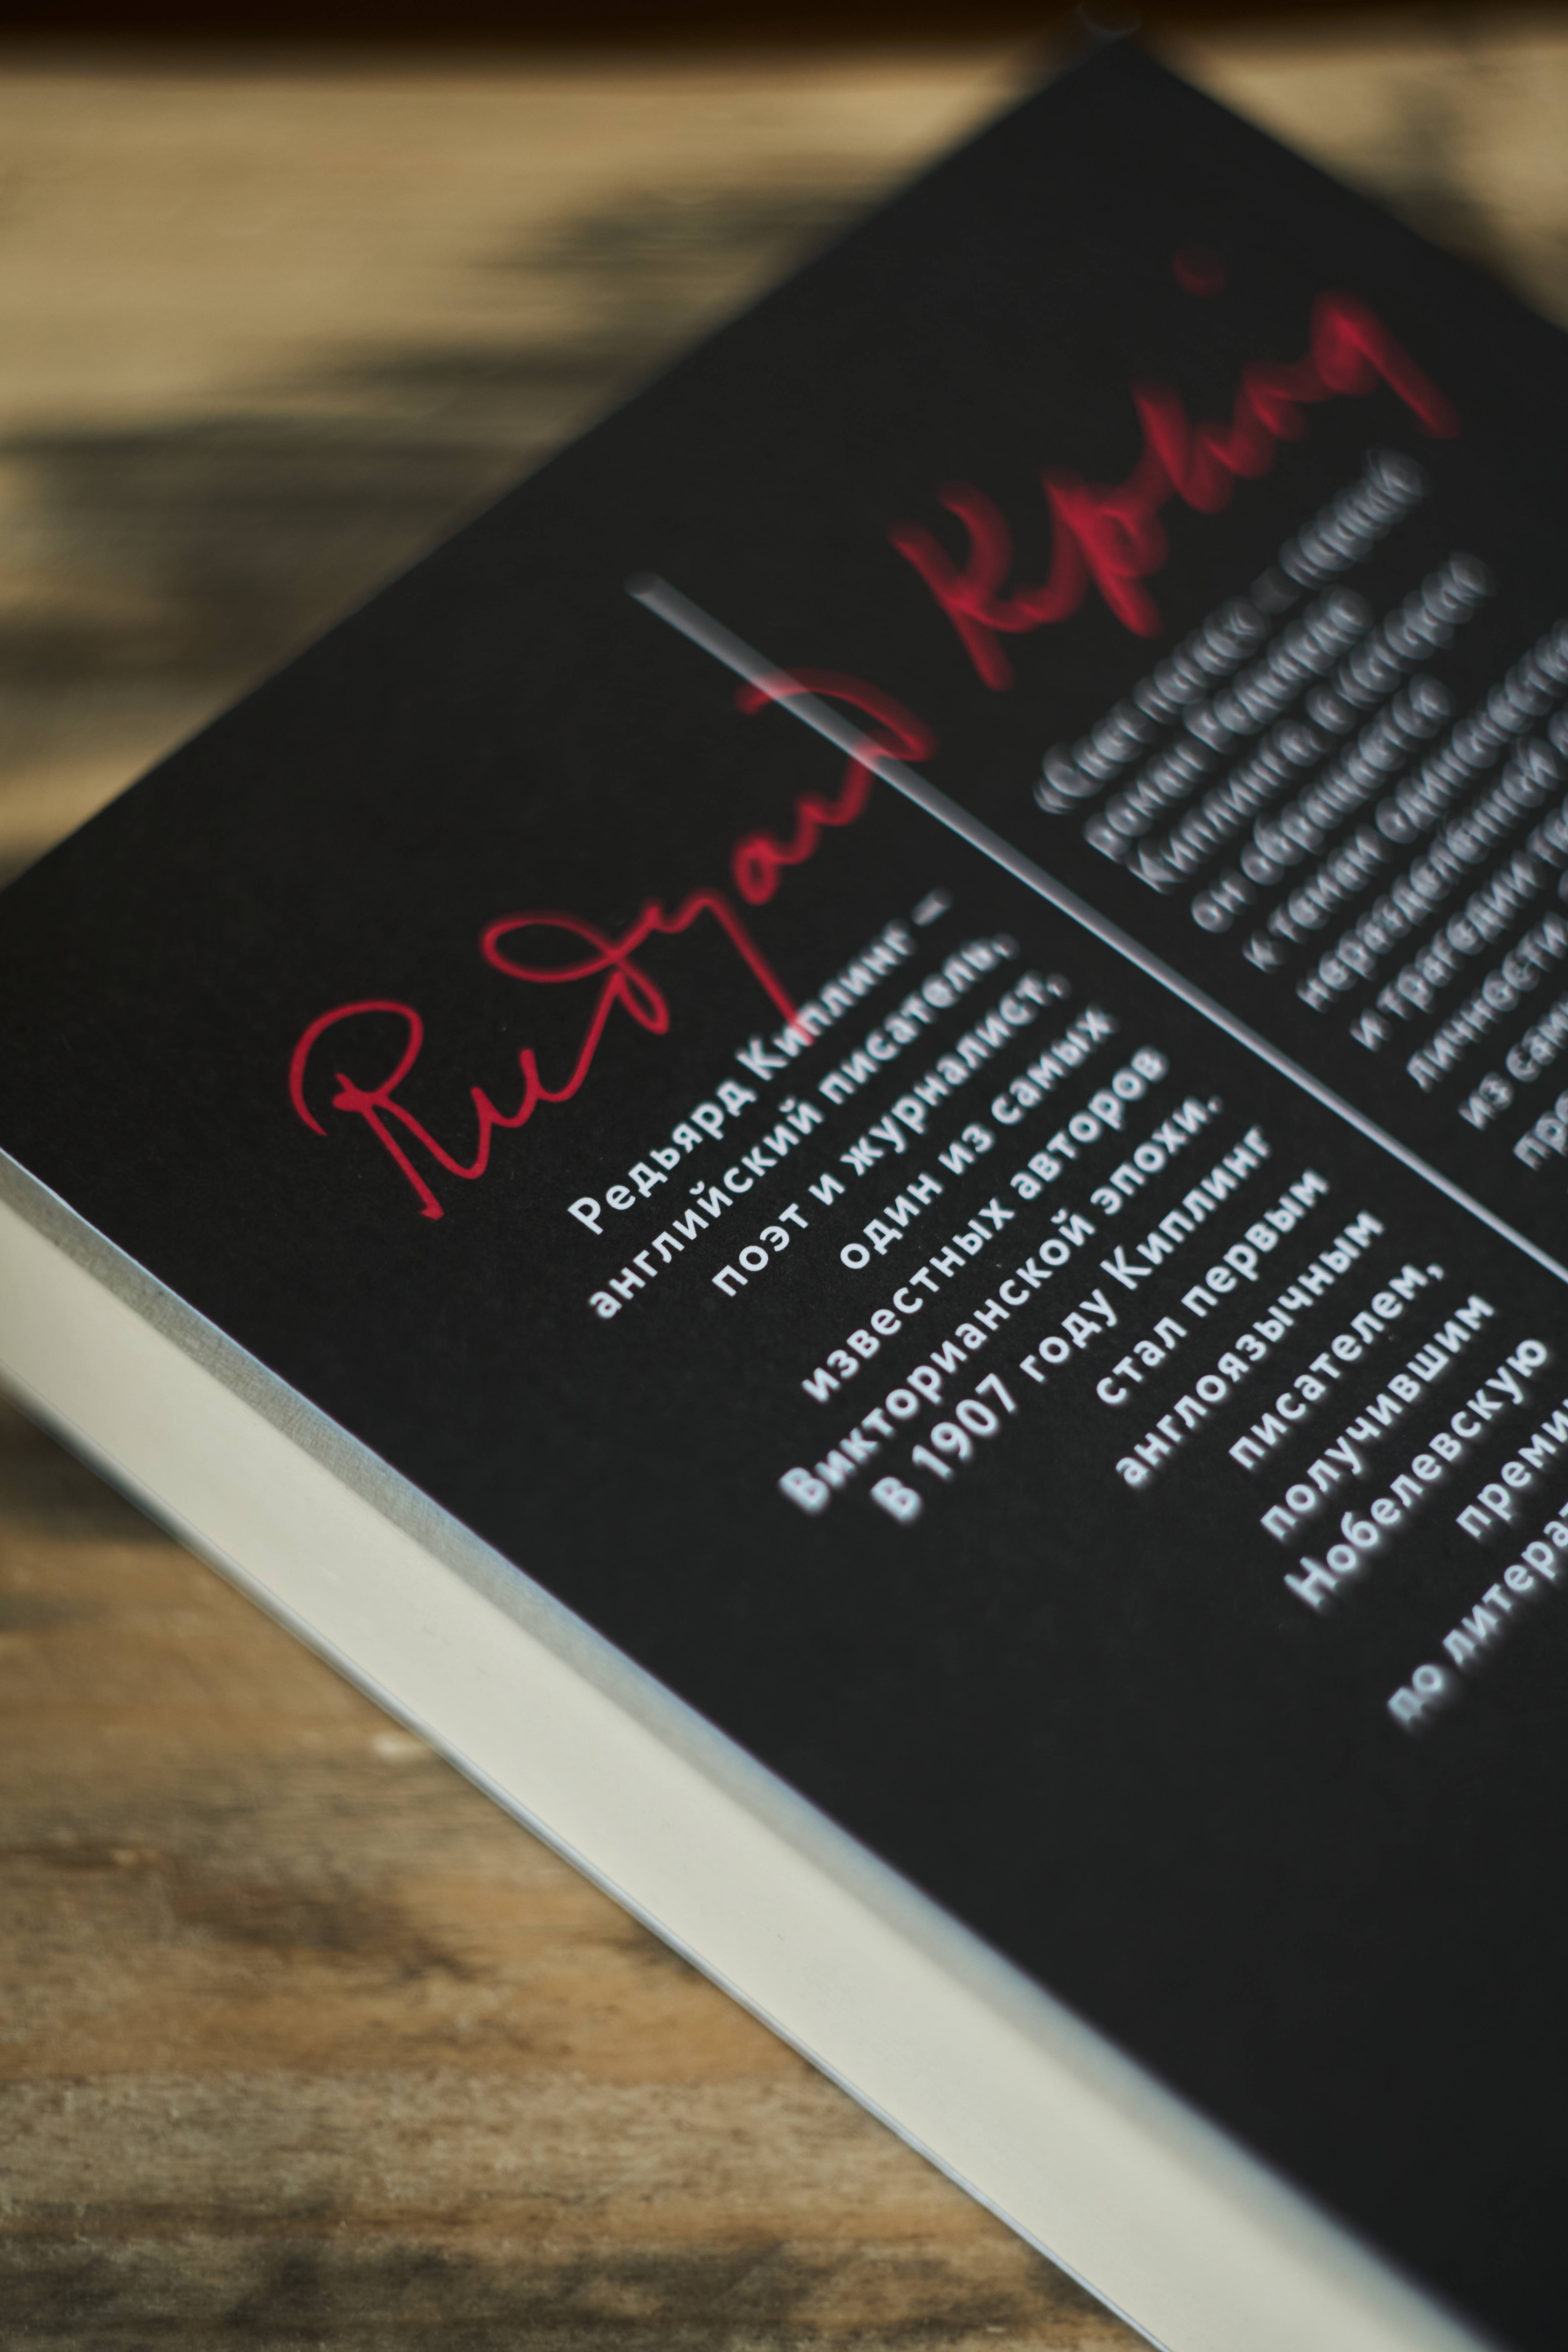 Rudyard Kipling
Редьярд Киплинг –
английский писатель,
поэт и журналист,
один из самых
известных авторов
Викторианской эпохи.
В 1907 году Киплинг
стал первым
англоязычным
писателем,
получившим
Нобелевскую
преми
по литерат
«Свет погас» – первый
роман Редьярда
Киплинга, в котором
он обращается
к темам одиночества
неразделённой
и трагедии
личности
из сам